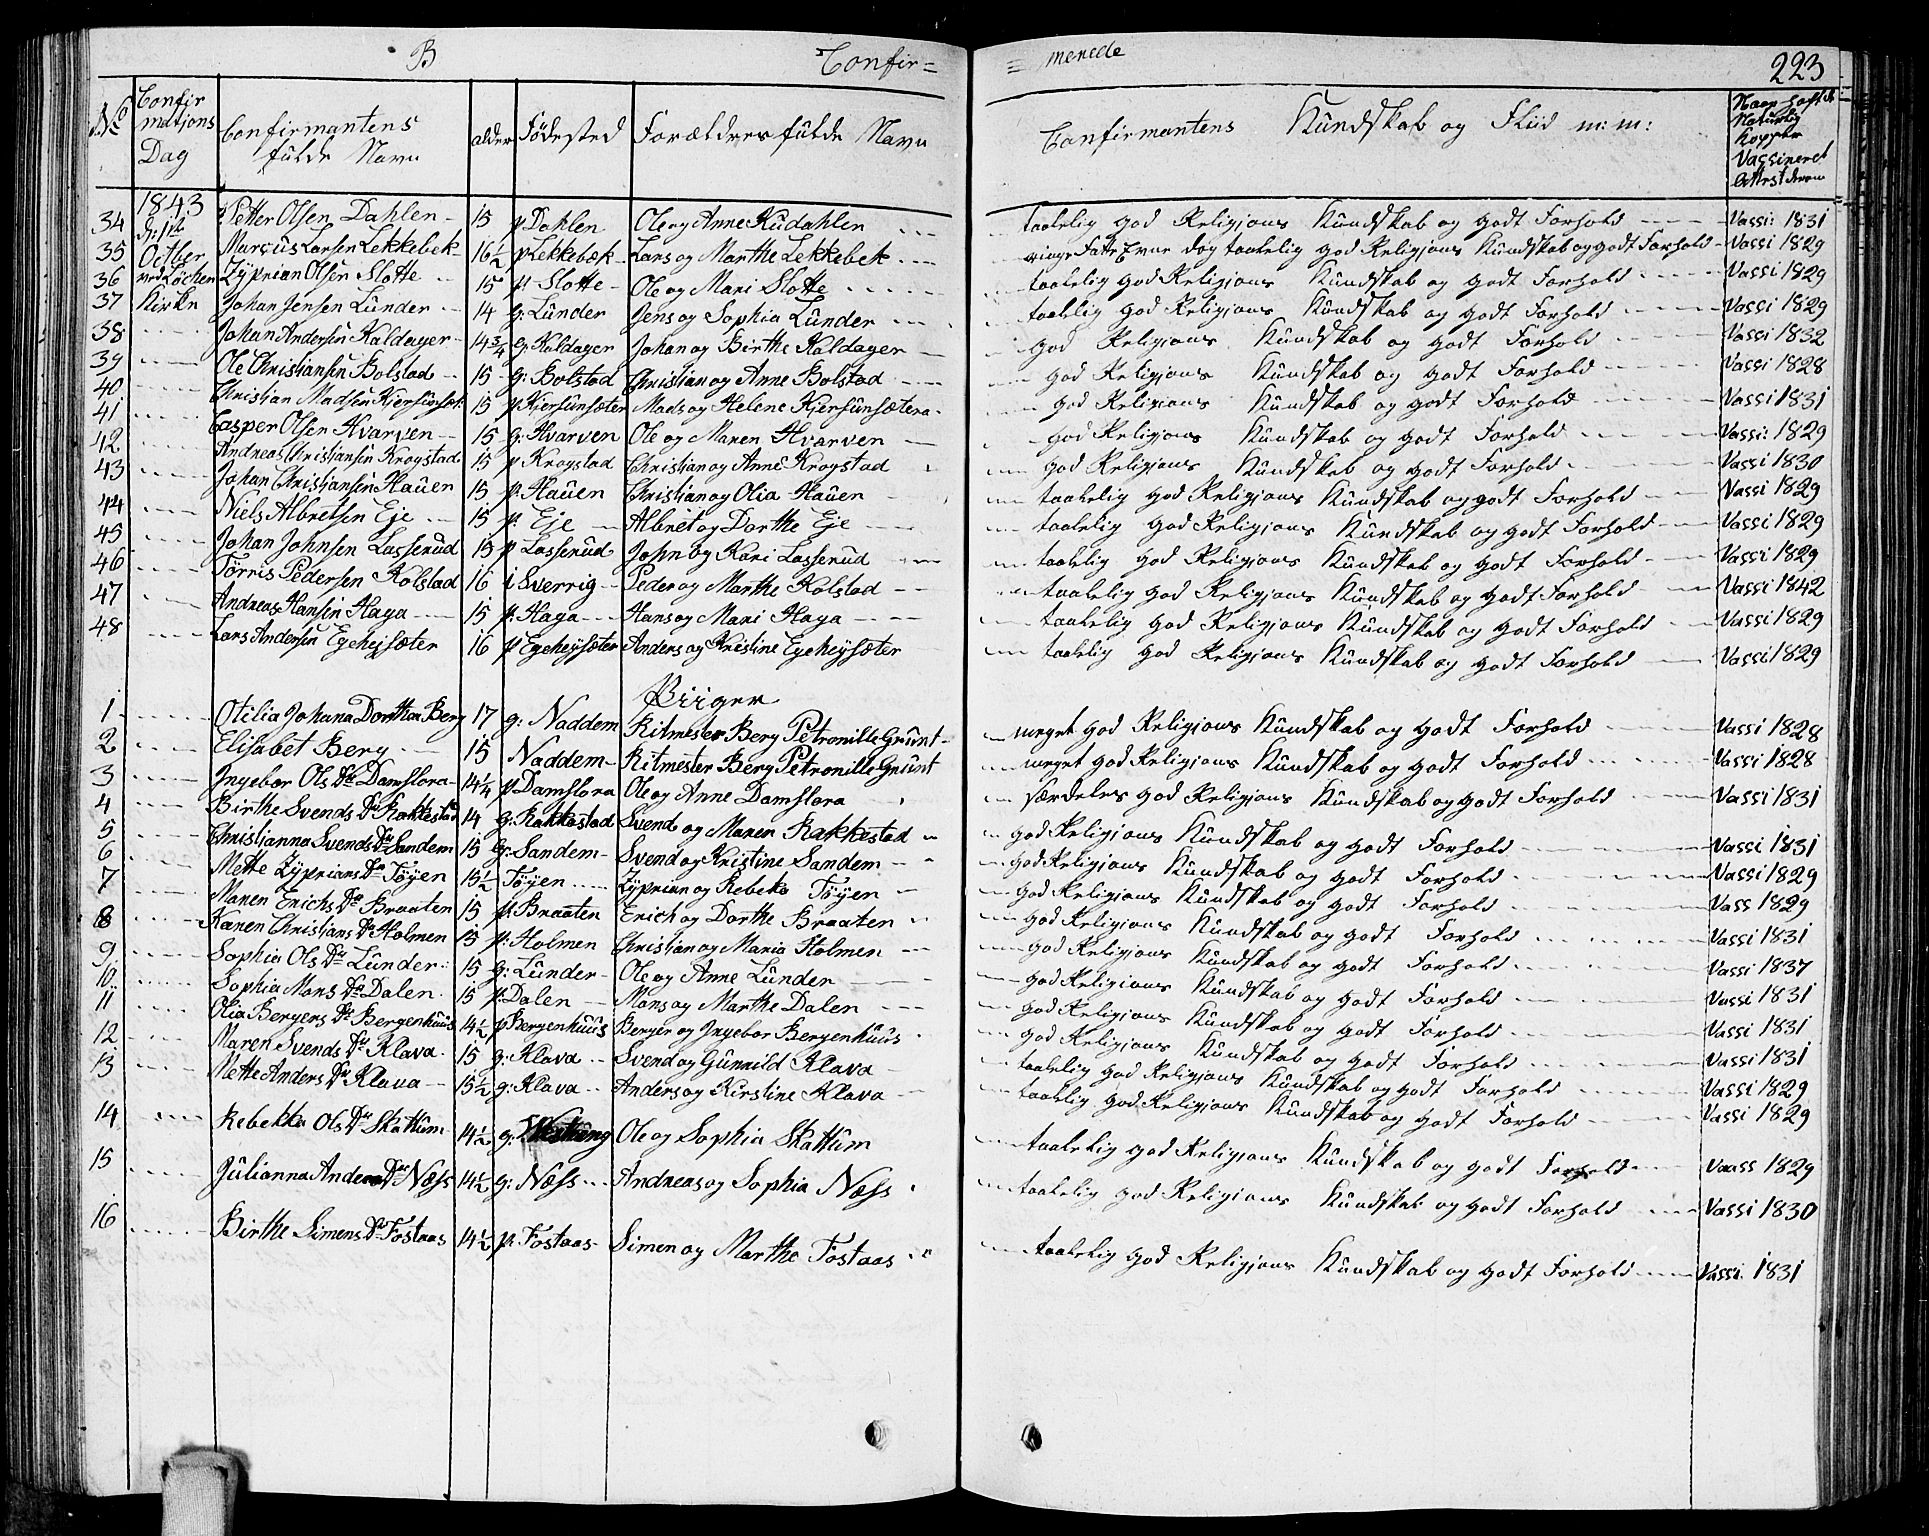 B Confir= = merede 223
No Confirmatjons Dag Confirmantens fulde Navn alder Fødested Forældres fulde Navn Confirmantens Kundskab og Fliid m:m: Naar haft de Naturlig Kopper Vassineret Attest derom
34 1843 Petter Olsen Dahlen 15 p Dahlen Ole og Anne Kudahlen taalelig god Religjons Kundskab og godt Forhold Vassi: 1831
35 d: 1st Octber Marcus Larsen Lekkebek 16½ p Lekkebæk Lars og Marthe Lekkebek ringe Fatte Evne dog taalelig god Religjons Kundskab og godt Forhold Vassi 1829
36 ved Løchen Zyprian Olsen Slotte 15 p Slotte Ole og Mari Slotte taalelig god Religjons Kundskab og godt Forhold Vassi 1829
37 Kirkn Johan Jensen Lunder 14 g: Lunder Jens og Sophia Lunder taalelig god Religjons Kundskab og godt Forhold Vassi 1829
38 Johan Andersen Kaldager 14¾ g Kaldager Johan og Birthe Kaldager god Religjons Kundskab og godt Forhold Vassi 1832
39 Ole Christiansen Bolstad 15 g: Bolstad Christian og Anne Bolstad god Religjons Kundskab og godt Forhold Vassi 1828
40 Christian Madsen Kjersunsæt 15 p Kjersunsæter Mads og Helene Kjersunsætera god Religions Kundskab og godt Forhold Vassi 1831
41 Casper Olsen Hvarven 15 g: Hvarven Ole og Maren Hvarven god Religjons Kundskab og godt Forhold Vassi: 1829
42 Andreas Christiansen Krogstad 15 p Krogstad Christian og Anne Krogstad god Religjons Kundskab og godt Forhold Vassi 1830
43 Johan Christjansen Hauen 15 p. Hauen Christjan og Olia Hauen taalelig god Religjons Kundskab og godt Forhold Vassi 1829
44 Niels Albretsen Eje 15 p: Eje Albret og Dorthe Eje taalelig god Religjons Kundskab og godt Forhold Vassi 1829
45 Johan Johnsen Lasserud 15 p Lasserud John og Kari Lasserud taalelig god Religjons Kundskab og godt Forhold Vassi 1829
46 Tørris Pedersen Kolstad 16 i Sverrig Peder og Marthe Kolstad taalelig god Religjons Kundskab og godt Forhold Vassi 1842
47 Andreas Hansen Haga 15 p: Haga Hans og Mari Haga taalelig god Religjons Kundskab og godt Forhold Vassi 1829
48 Lars Andersen Egehejsæter 16 p Egeheysæter Anders og Kristine Egeheysæter taalelig god Religjons Kundskab og godt Forhold Vassi 1829
Piiger
1 Otilia Johana Dorthea Berg 17 g: Naddem Ritmester Berg Petronille Grunt meget god Religjons Kundskab og godt Forhold Vassi 1828
2 Elisabet Berg 15 Naddem Ritmester Berg Petronille Grunt meget god Religjons Kundskab og godt Forhold Vassi 1828
3 Ingebor Ols Dtr Damslora 14¼ p Damslora Ole og Anne Damslora særdeles god Religjons Kundskab og godt Forhold Vassi 1831
4 Birthe Svends Dtr Rakkestad 14 g: Rakkestad Svend og Maren Rakkestad god Religjons Kundskab og godt Forhold Vassi 1831
5 Christianna Svends Dtr Sandem 15 g: Sandem Svend og Kristine Sandem god Religjons Kundskab og godt Forhold Vassi 1829
6 Mette Zyprians Dtr Tøyen 15½ Tøyen Zyprian og Rebeka Tøyen god Religjons Kundskab og godt Forhold Vass 1829
7 Maren Erichs Dtr Braaten 15 p: Braaten Erich og Dorthe Braaten god Religjons Kundskab og godt Forhold Vassi 1831
8 Karen Christians Dtr Holmen 15 p: Holmen Christian og Maria Holmen god Religjons Kundskab og godt Forhold Vassi 1837
9 Sophia Ols Dtr Lunder 15 g: Lunder Ole og Anne Lunder god Religions Kundskab og godt Forhold Vassi 1831
10 Sophia Mons Dtr Dalen 15 p: Dalen Mons og Marthe Dalen god Religjons Kundskab og godt Forhold Vassi 1831
11 Olia Bergers Dtr Bergenhuus 14½ p Bergenhuus Berger og Ingebor Bergenhuus god Religjons Kundskab og godt Forhold Vassi 1831
12 Maren Svends Dtr Klava 15 g: Klava Svend og Gunnild Klava taalelig god Religjons Kundskab og godt Forhold Vassi 1829
13 Mette Anders Dtr Klava 15½ g: Klava Anders og Kirstine Klava taalelig god Religjons Kundskab og godt Forhold Vassi 1829
14 Rebekka Ols Dtr Skattum 14½ g: Ole og Sophia Skattum taalelig god Religjons Kundskab og godt Forhold Vaass 1829
15 Julianna Anders Dtr Næss 14½ g: Næss Andreas og Sophia Næss taalelig god Religjons Kundskab og godt Forhold Vassi 1830
16 Birthe Simens Dtr Fostaas 14½ p. Fostaas Simen og Marthe Fostaas taalelig god Religjons Kundskab og godt Forhold Vassi: 1831